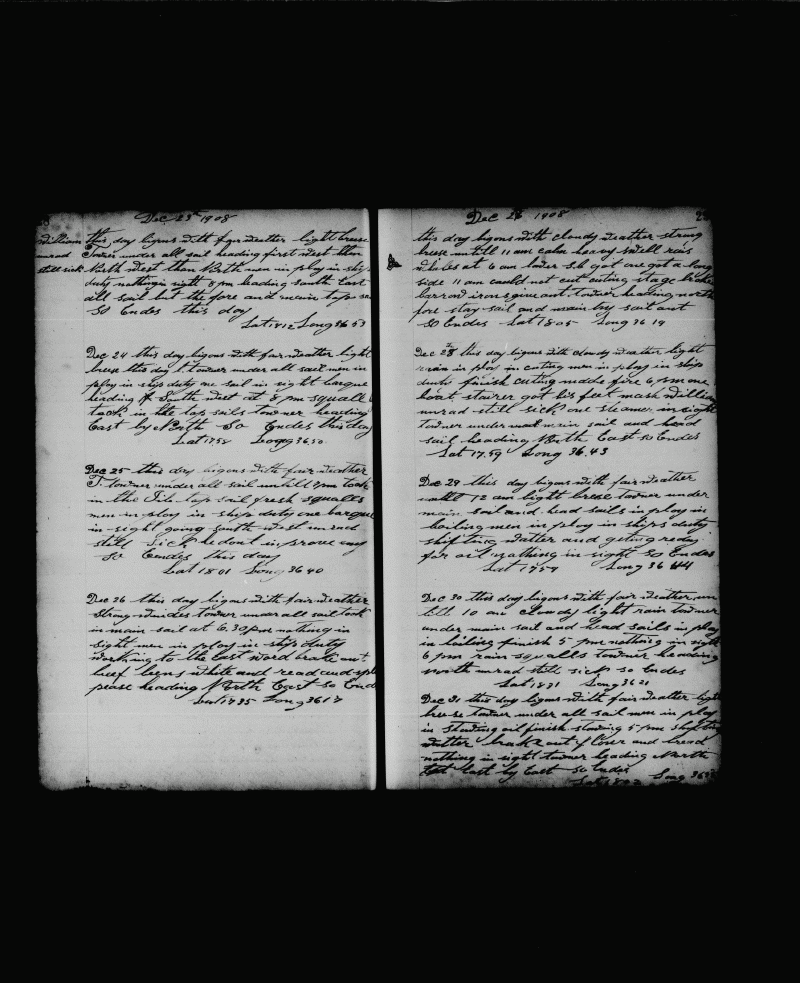 Dec 23 1908
William this day bigons with fair weather light breese
unrad Towner under all sail heading first West then
still sick North West then North men in ploy in ship
duty nothing in sight 8 pm heading South East
all sail but the fore and main top sa
So Endes this day
Lat 1812 Long 36 53
Dec 24 this day bigons with fair weather light
breese this day J. towner under all sail men in
ploy in ships duty one sail in sight barque
heading South West at 8 pm squall
took in the top sails towner heading
East by North So Endes this day
Lat 17.58 Long 36.50
Dec 25 this day bigons with fair weather
J. towner under all sail untill 7 pm took
in the top sail fresh squalls
men in ploy in ship duty one barque
in sight going South West unrad
still sick he dont improve any
So Eendes this day
Lat 18 01 Long 36 40
Dec 26 this day bigons with fair weather
strong windes towner under all sail took
in main sail at 6.30 pm nothing in
sight men in ploy in ship duty
working to the East word brake out
beef beens white and read and spli
pease heading North East So End
Lat 17 35 Long 36 17
Dec 1908
this day bigons with cloudy weather strong
breese untill 11 am calm heavy swell
whales at 6 am lower S.b got one got a long
side 11 am could not cut cuting stage broke
barrow irons give out. towner heading north
fore stay sail and main try sail out
So Endes Lat 18 05 Long 36 19
Dec 28 this day bigons with cloudy weather light
rain in ploy in cuting men in ploy in ship
duty finish cuting made fire 6 pm one
boat stairer got his feet mash William
unrad still sick one steamer in sight
towner under main sail and head
sail heading North East So Endes
Lat 17.59 Long 36.43
Dec 29 this day bigons with fair weather
untill 12 am light breese towner under
main sail and head sails in ploy in
boiling men in ploy in ships duty
shifting watter and geting redey
for oil nothing in sight So Endes
Lat 17 54 Long 36 44
Dec 30 this day bigons with fair weather un
till 10 am cloudy light rain towner
under main sail and head sails in ploy
in boiling finish 5 pm nothing in sight
6 pm rain squalls towner heading
north unrad still sick so Endes
Lat 18 31 Long 36 21
Dec 31 this day bigons with fair weather light
breese towner under all sail men in ploy
in stowing oil finish stowing 5 pm shifting
watter brake out flower and bread
nothing in sight towner heading North
East by East So Endes
Long 36